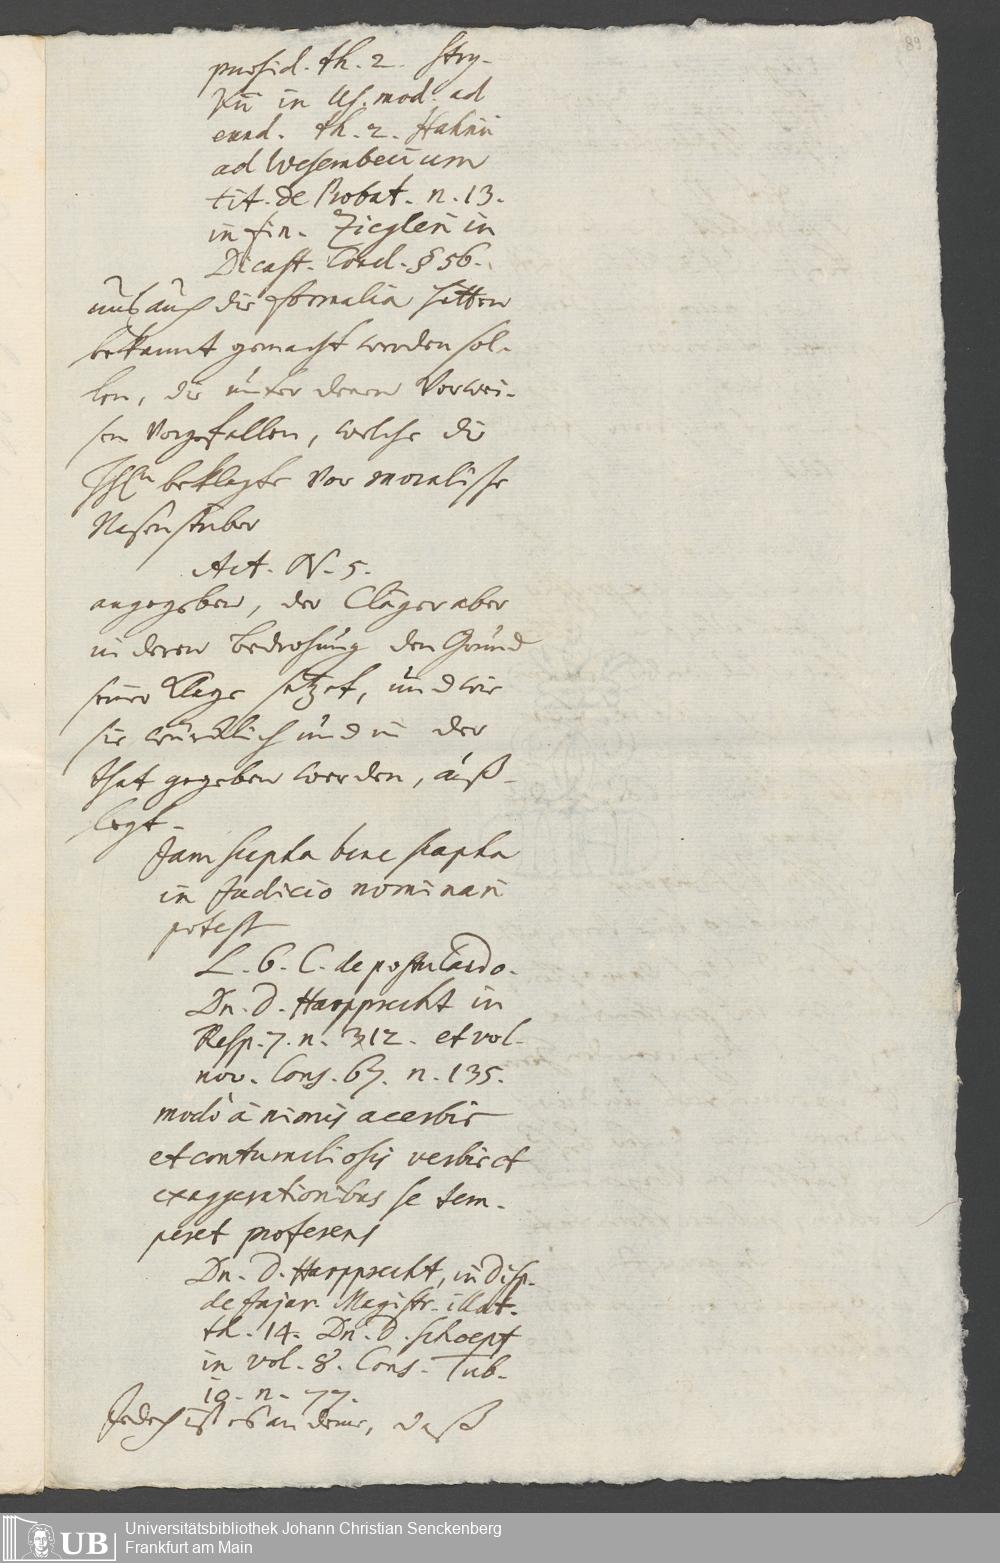 89
praesid. th. 2. Stry-
kii in Us. mod. ad
eund. th. 2. Hahnii
ad Wesembecium
tit. de Probat. n. 13.
in fin. Ziegleri in
Dicast. Concl. § 56.
auch die formalia hätten
bekannt gemacht werden sol-
len, die unter denen Verwei-
sen vorgefallen, welche die
beklagte vor moralische
Nasenstüber
Act. N. 5.
angegeben, der Cläger aber
in deren Bedrohung den Grund
seiner Klage setzet, und wie
sie würcklich und in der
that gegeben werden, auß-
legt.
Jam scapha bene scapha
in Judicio nominari
potest
L. 6. C. de postulando.
Dn. D. Harpprecht in
Resp. 7. n. 312. et vol.
nov. Cons. 67. n. 135.
modò à nimis acerbis
et contumeliosis verbis et
exaggerationibus se tem-
peret proferens
Dn. D. Harpprecht, in Disp.
de Injur. Magistr. illat.
th. 14. Dn. D. Schoepf
in vol. 8. Cons. Tub.
10. n. 77.
Jedoch ist es an deme, daß
UB
Universitätsbibliothek Johann Christian Senckenberg
Frankfurt am Main